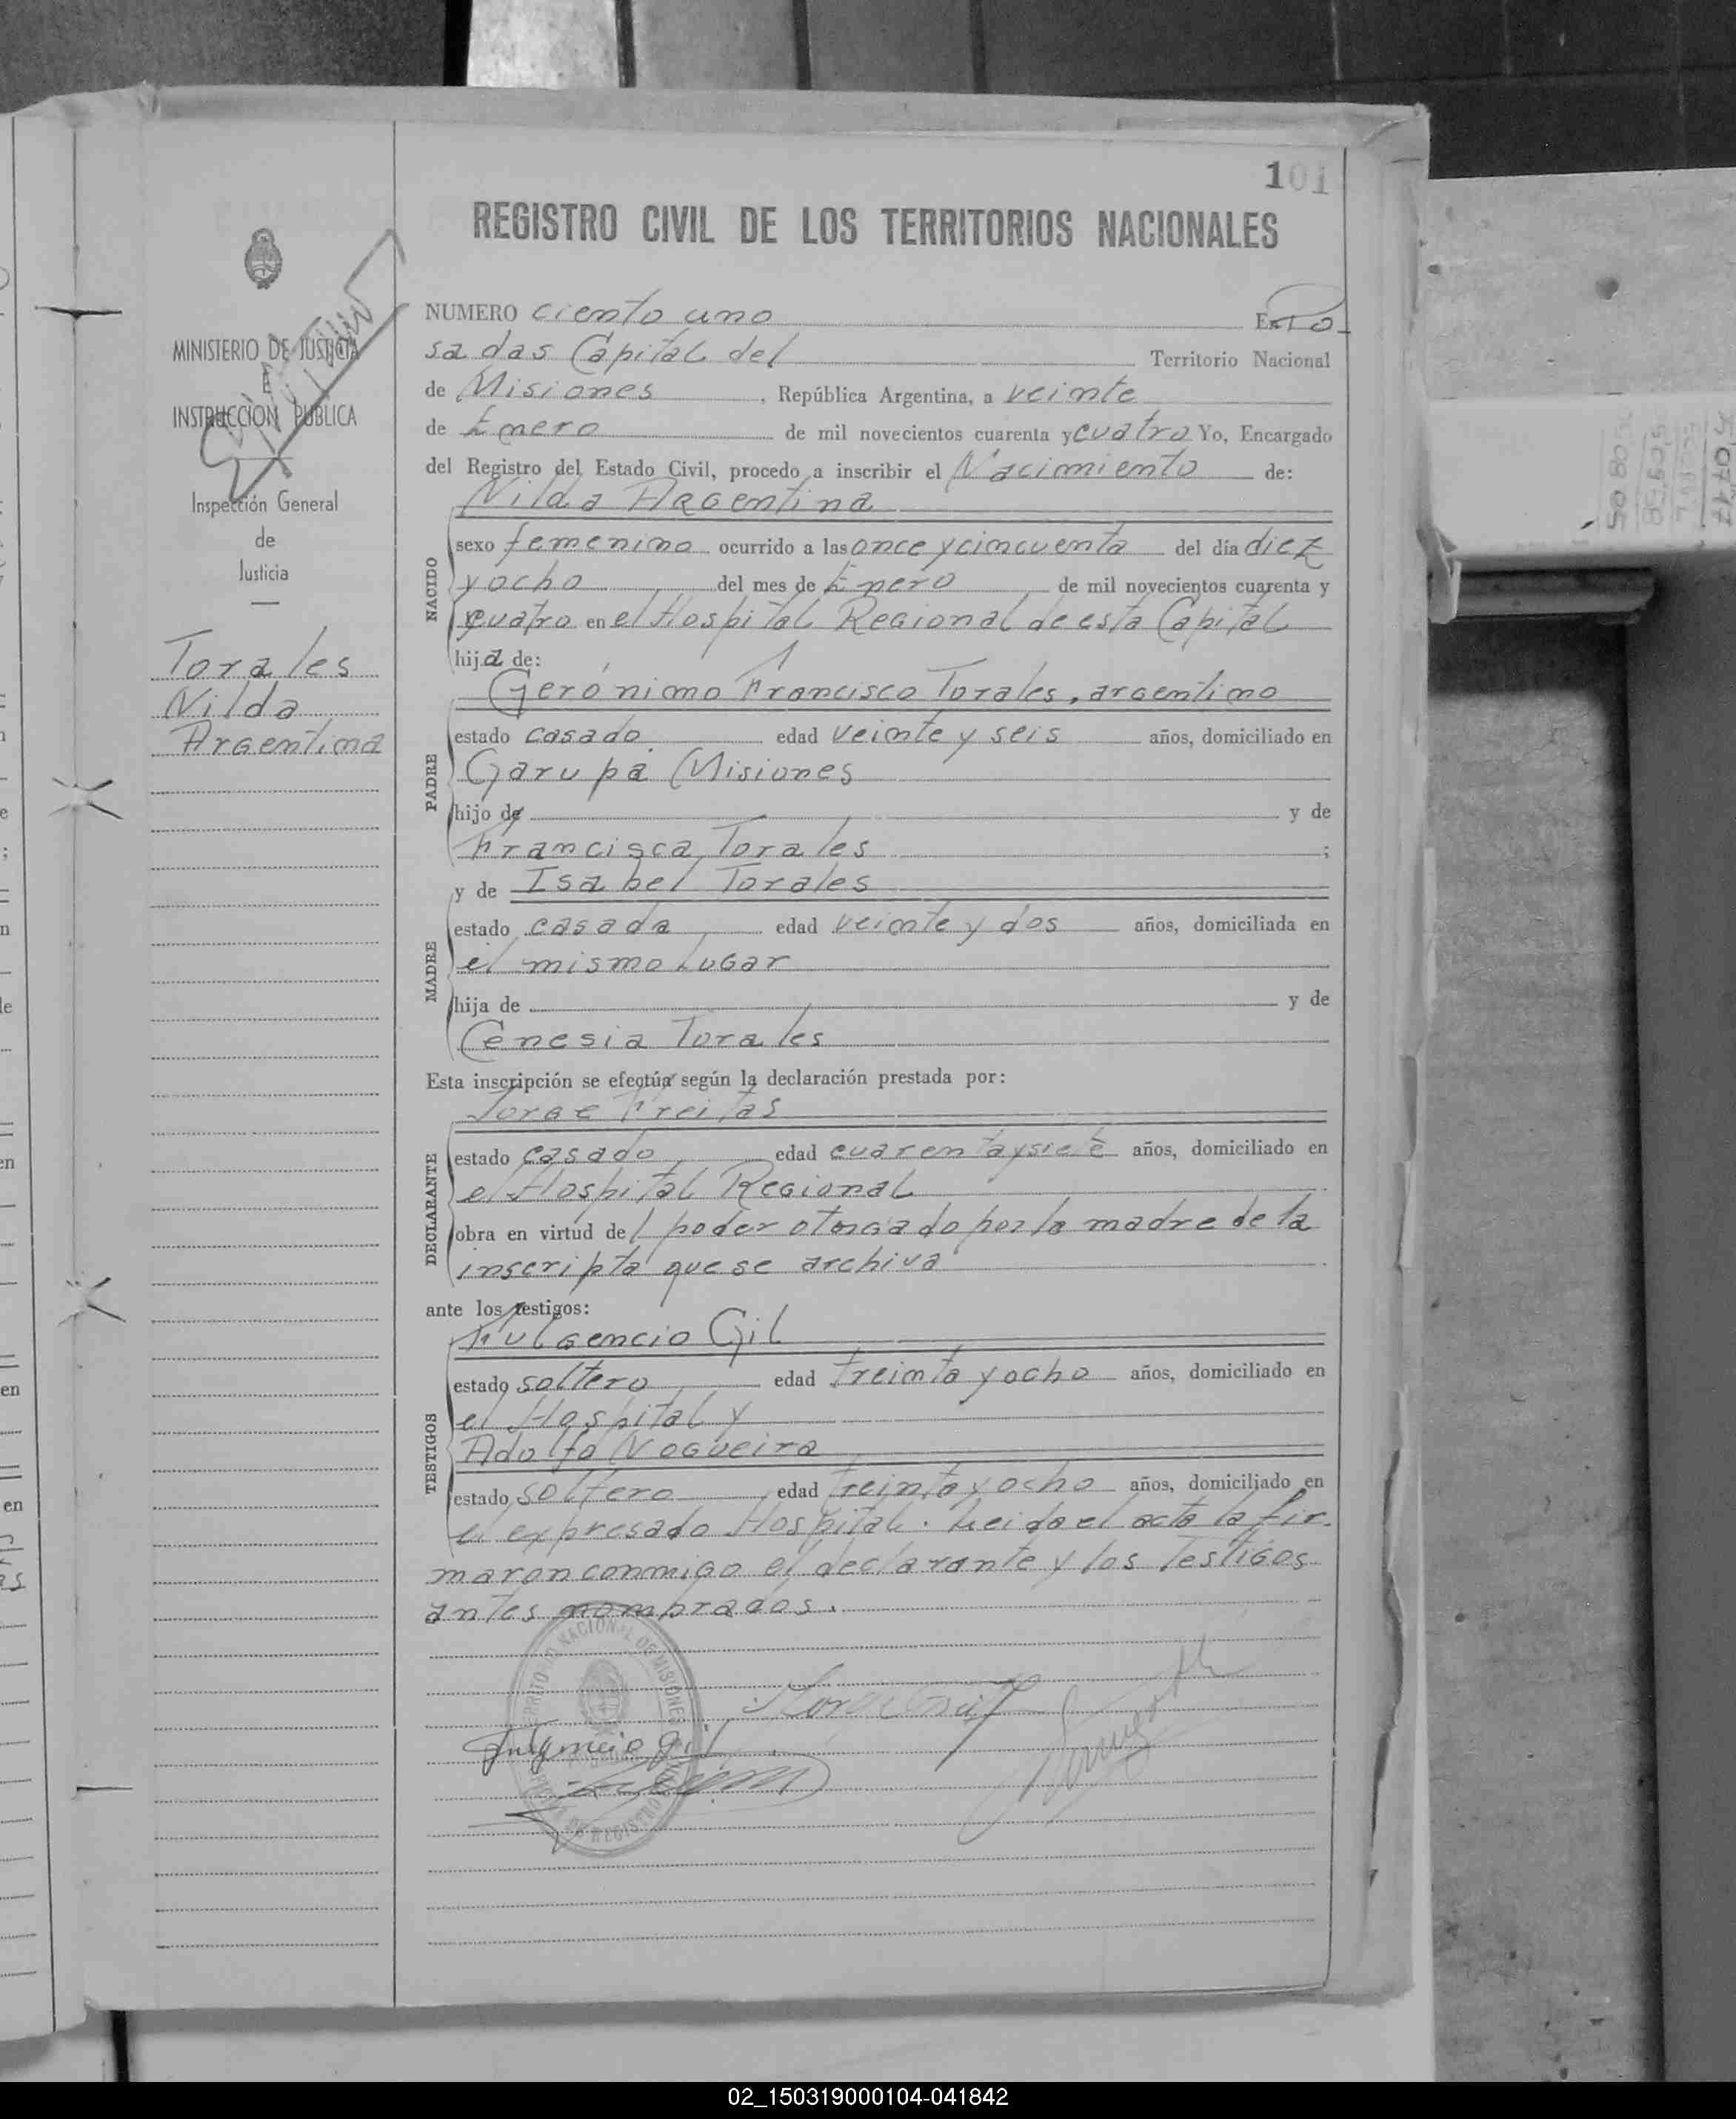 101
REGISTRO CIVIL DE LOS TERRITORIOS NACIONALES
MINISTERIO DE JUSTICIA
E
INSTRUCCIÓN PUBLICA
Inspección General
de
Justicia
Torales
Nilda
Argentina
NUMERO ciento uno En Po-
sadas Capital del Territorio Nacional
de Misiones, República Argentina, a veinte
de Enero de mil novecientos cuarenta y cuatro Yo, Encargado
del Registro del Estado Civil, procedo a inscribir el Nacimiento de:
Nilda Argentina
NACIDO
sexo femenino ocurrido a las once y cincuenta del día diez
y ocho del mes de Enero de mil novecientos cuarenta y
cuatro en el Hospital Regional de esta Capital
hija de:
Gerónimo Francisco Torales, argentino
PADRE
estado casado edad veinte y seis años, domiciliado en
Garupá Misiones
hijo de y de
Francisca Torales ;
y de Isabel Torales
MADRE
estado casada edad veinte y dos años, domiciliada en
el mismo lugar
hija de y de
Cenesia Torales
Esta inscripción se efectúa según la declaración prestada por:
Jorge Freitas
DECLARANTE
estado casado edad cuarenta y siete años, domiciliado en
el Hospital Regional
obra en virtud del poder otorgado por la madre de la
inscripta que se archiva
ante los testigos:
Fulgencio Gil
TESTIGOS
estado soltero edad treinta y ocho años, domiciliado en
el Hospital y
Adolfo Nogueira
estado soltero edad treinta y ocho años, domiciliado en
el expresado Hospital. Leida el acta la fir-
maron conmigo el declarante y los testigos
antes nombrados.
Fulgencio Gil
02_150319000104-041842